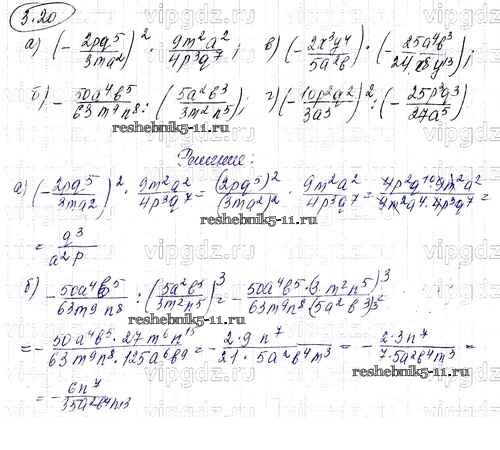 5.20
а) (-2pq⁵/3ma²)² · 9m²a²/4p³q⁷; в) (-2x³y⁴/5a²b) · (-25a²b³/24x⁸y¹³);
б) -50a⁴b⁵/63m⁹n⁸ : (5a²b³/3m²n⁵); г) (-10p²q²/3a³)² : (-25p²q³/27a⁵)
reshebnik5-11.ru reshebnik5-11.ru
Решение:
а) (-2pq⁵/3ma²)² · 9m²a²/4p³q⁷ = (2pq⁵)²/(3ma²)² · 9m²a²/4p³q⁷ = 4p²q¹⁰·9m²a²/9m²a⁴·4p³q⁷ =
reshebnik5-11.ru
= q³/a²p
б) -50a⁴b⁵/63m⁹n⁸ : (5a²b³/3m²n⁵)³ = -50a⁴b⁵·(3m²n⁵)³/63m⁹n⁸(5a²b³)³ =
= -50a⁴b⁵·27m⁶n¹⁵/63m⁹n⁸·125a⁶b⁹ = -2·9n⁷/21·5a²b⁴m³ = -2·3n⁷/7·5a²b⁴m³ =
= -6n⁷/35a²b⁴m³
reshebnik5-11.ru reshebnik5-11.ru